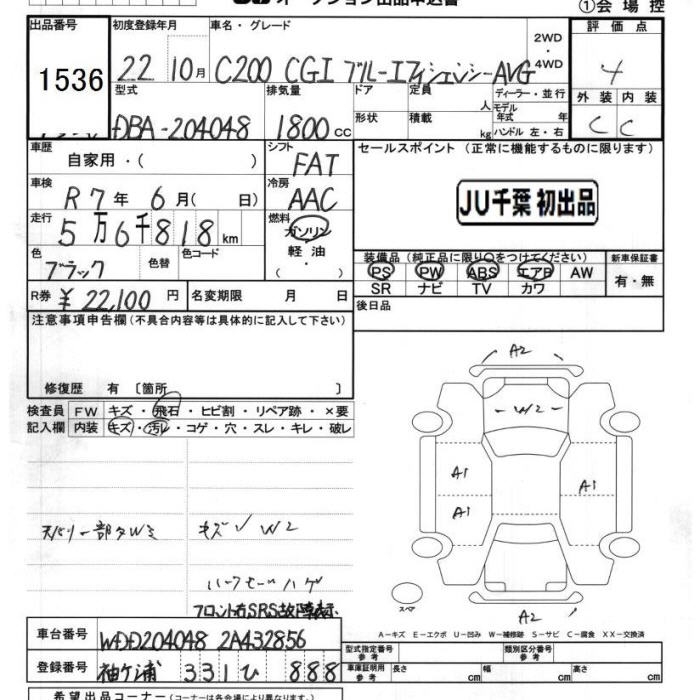 ①会場控
出品番号 初度登録年月 車名・グレード 評価点
1536 22 10月 C200 CGI ブルーエフィシェンシーAVG 2WD 4WD 4
型式 排気量 ドア 定員 人 ディーラー・並行 外装 内装
DBA-204048 1800cc 形状 積載 kg モデル年式 年 ハンドル 左・右 C C
車歴 自家用・( ) シフト FAT セールスポイント (正常に機能するものに限ります)
車検 R7年 6月( 日) 冷房 AAC JU千葉 初出品
走行 5万6千818km 燃料 ガソリン 軽油
色 ブラック 色替 色コード 装備品(純正品に限り○をつけてください) 新車保証書
PS PW ABS エアB AW 有・無
SR ナビ TV カワ
R券 ¥22,100円 名変期限 月 日 後日品
注意事項申告欄(不具合内容等は具体的に記入して下さい)
修復歴 有〔箇所 〕
検査員 FW キズ・飛石・ヒビ割・リペア跡・×要
記入欄 内装 キズ・汚レ・コゲ・穴・スレ・キレ・破レ
A2
W2
A1 A1
A1
キズ W2
ハゲ
フロント右SRS故障表示
スペア
A2
A-キズ E-エクボ U-凹み W-補修跡 S-サビ C-腐食 XX-交換済
車台番号 WDD204048 2A432856 型式指定番号 参考 類別区分番号 参考
登録番号 袖ケ浦 331 ひ 888 車庫証明用 参考 長さ cm 幅 cm 高さ cm
希望出品コーナー(コーナーは各会場により異なります。)